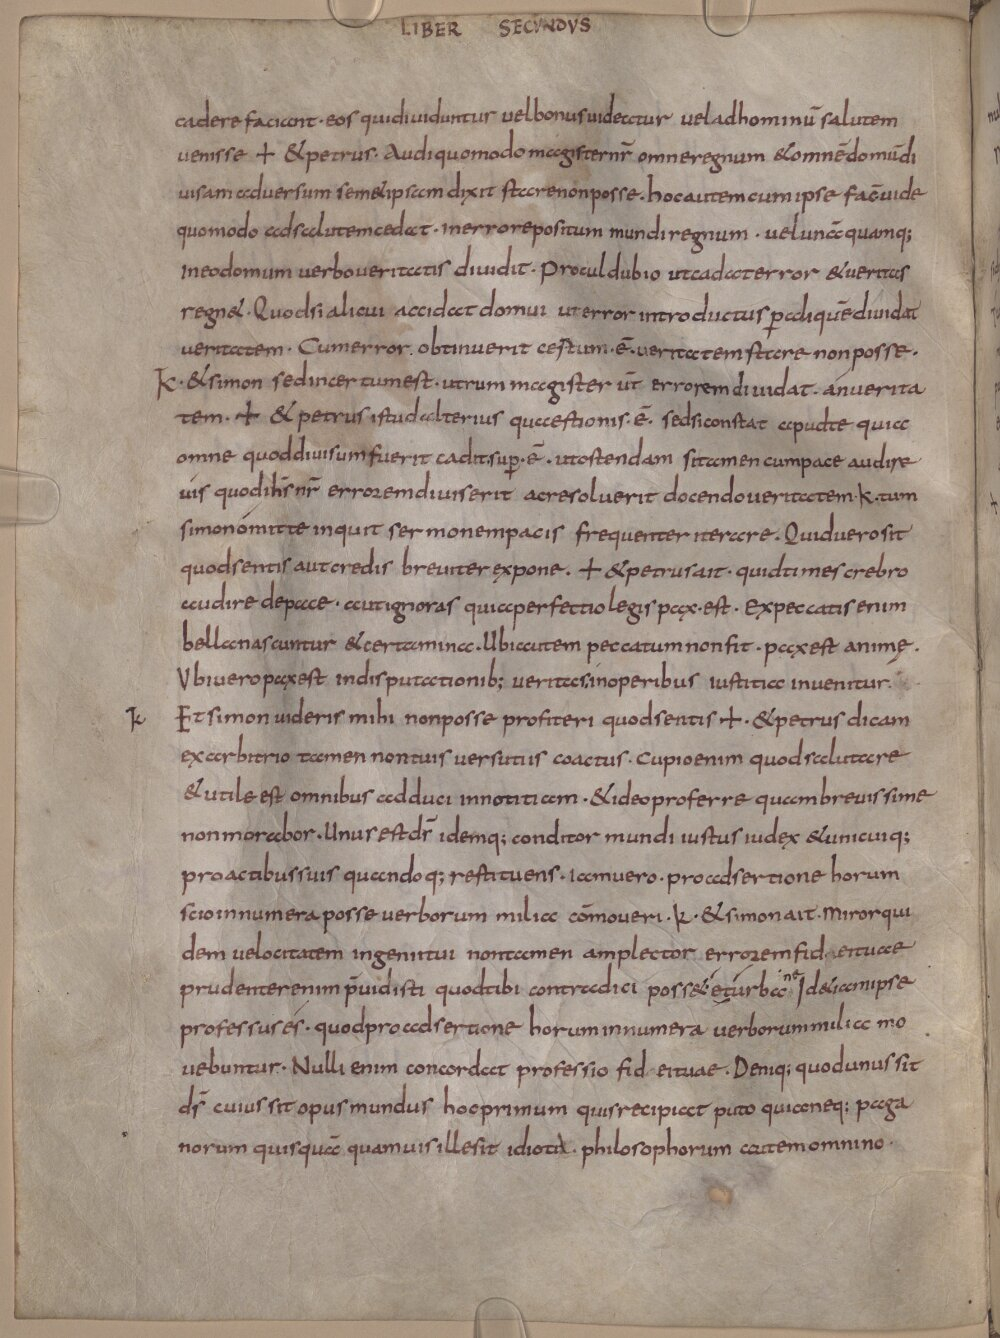 LIBER SECVNDVS
cadere faciant · eos qui diuiduntur uel bonus uideatur uel ad hominū salutem
uenisse ✝ & petrus · Audi quomodo magister nr̄ omne regnum & omnē domū di
uisam aduersum sem&ipsam dixit stare non posse · hoc autem cum ipse fac̄ uide
quomodo ad salutem cedat · In errore positum mundi regnum · uel unā quamq;
In eo domum uerbo ueritatis diuidit · Procul dubio ut cadat error & ueritas
regn& · Quod si alicui accidat domui ut error introductus p̱ adiquē diuidat
ueritatem · Cum error obtinuerit certum · ē · ueritatem stare non posse ·
k · & simon sed incertum est · utrum magister ur̄ errorem diuidat · an uerita
tem · ✝ & petrus istud alterius quaestionis · ē · sed si constat apud te quia
omne quod diuisum fuerit cadit sup̱ · ē · ut ostendam si tamen cum pace audire
uis quod ih̄s nr̄ errorem diuiserit ac resoluerit docendo ueritatem · k · tum
simon omitte inquit sermonem pacis frequenter iterare · Quid uero sit
quod sentis aut credis breuiter expone · ✝ & petrus ait · quid times crebro
audire de pace · aut ignoras quia perfectio legis pax · est · Ex peccatis enim
bella nascuntur & certamina · Ubi autem peccatum non fit · pax est animę ·
Vbi uero pax est in disputationib; ueritas · in operibus iustitia inuenitur ·
k Et simon uideris mihi non posse profiteri quod sentis ✝ · & petrus dicam
ex arbitrio tamen non tuis uersutiis coactus · Cupio enim quod salutare
& utile est omnibus adduci in notitiam · & ideo proferre quam breuissime
non morabor · Unus est ds̄ idemq; conditor mundi iustus iudex & unicuiq;
pro actibus suis quandoq; restituens · iam uero · pro adsertione horum
scio innumera posse uerborum milia cōmoueri · k · & simon ait · Miror qui
dem uelocitatem ingenii tui non tamen amplector errorem fid ei tuae
prudenter enim p̄uidisti quod tibi contradici poss& et urbane Id &iam ipse
professus és · quod pro adsertione horum innumera uerborum milia mo
uebuntur · Nulli enim concordat professio fid ei tuae · Deniq; quod unus sit
ds̄ cuius sit opus mundus hoc primum quis recipiat puto quia neq; paga
norum quisquā quamuis ille sit idiota · philosophorum autem omnino ·